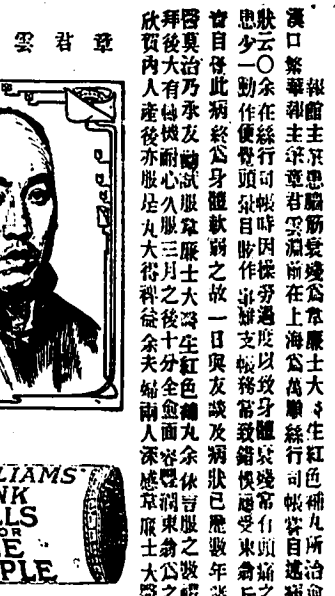 報館主筆患腦筋衰殘為韋廉士大醫生紅色補丸所治愈
漢口繁華報主筆章君雲淵前在上海為萬順絲行司帳嘗自述病
狀云〇余在絲行司帳時因操勞過度以致身體衰殘常有頭痛之
患少一動作便覺頭暈目眩作事難支帳務常致錯悞適受東翁
實自得此病終為身體軟弱之故一日與友談及病狀已歷數年
醫莫治乃承友囑試服韋廉士大醫生紅色補丸余依言服之數
拜後大有轉機耐心久服三月之後十分全愈面容豐潤東翁為之
欣賀內人產後亦服是丸大得裨益余夫婦兩人深感韋廉士大醫
章君雲
LIAMS
NK
LLS
FOR
LE
PLE